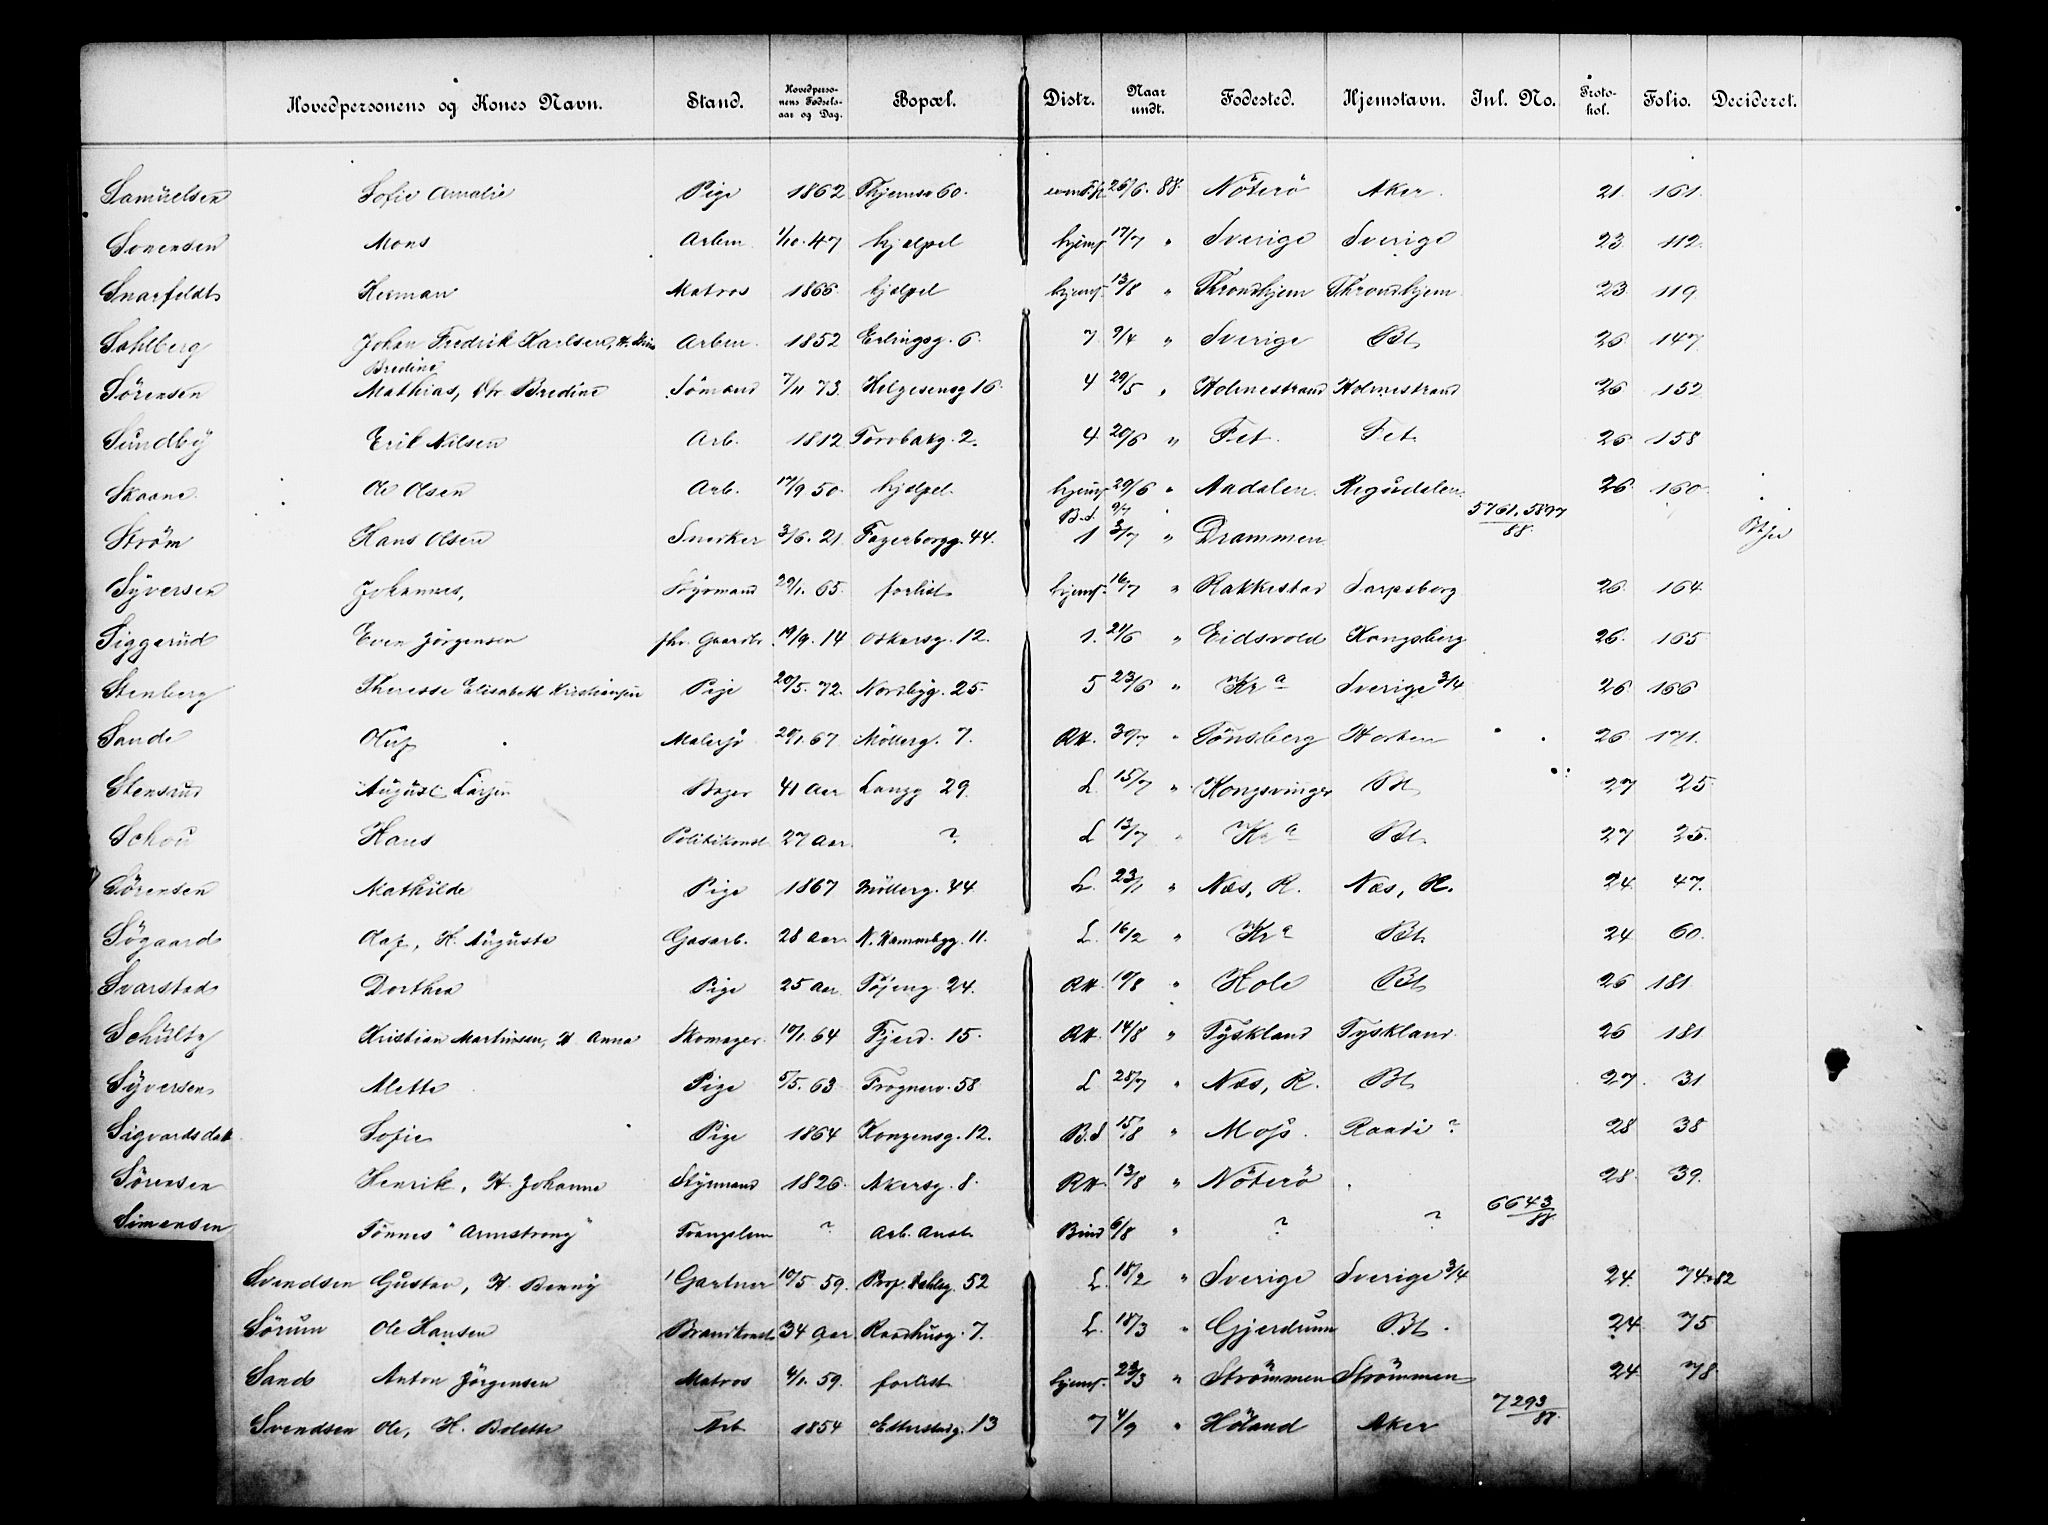 Hovedpersonens og Kones Navn. Stand. Hovedpersonens Fødselsaar og Dag. Bopæl. Distr. Naar undt. Fødested. Hjemstavn. Inl. No. Protokol. Folio. Decideret.
Samuelsen Sofie Amalie Pige 1862 60. 26/6. 88. Nöterö Aker. 21. 161.
Svensen Mons Arbm 1/10. 47 hjælpel hjemf. 17/7 " Sverige Sverige 23. 112.
Snarfeldt Herman Matros 1866. hjælpel hjemf. 13/8 " Throndhjem Throndhjem 23. 119.
Sahlberg Johan Fredrik Karlsen, Arbm. 1852 Erlingsg. 6. 7. 9/4 " Sverige Bt 26. 147.
Bredine
Sørensen Mathias, Bredine Sömand 7/11 73. Helgesensg 16. 4 29/5 " Holmestrand Holmestrand 26. 152
Sundby Erik Nilsen Arb. 1812 Torvbakg. 2. 4. 20/6 " Fet. Fet. 26. 158
Skaane. Ole Olsen Arb. 17/9 50. hjælpel. hjemf. 29/6 " Aadalen. 26. 160.
Ström Hans Olsen Snedker 3/6. 21. Fagerborgg. 44. B.d. 9/7 1 3/7 " Drammen 5761. 5897/88.
Syversen Johannes, Styrmand 29/1. 65. forlist hjemf. 16/7 " Rakkestad Sarpsborg 26. 164.
Siggerud Even Jörgensen fhv. Gaardbr. 19/9. 14 Oskarsg. 12. 1. 21/6 " Eidsvold Kongsberg 26. 165
Stenberg Therese Elisabeth Kristiansen Pige 20/5. 72. Nordbyg. 25. 5 23/6 " Kra Sverige 3/4 26. 166
Sande Oluf Malersv. 20/1. 67 Möllerg. 7. Rtt. 30/7 " Tönsberg Horten 26. 171.
Stensrud August Larsen Bager 41 Aar Langg 29. L. 15/7 " Kongsvinger Bt 27 25.
Schou Hans Politikonst. 27 Aar. ? L 13/7 " Kra Bt. 27 25.
Sørensen Mathilde Pige 1867 Möllerg. 44 L. 23/1 " Næs, R. Næs, R. 24. 47.
Søgaard Olaf, H. Augusta Gasarb. 28 Aar. N. Hammbgg. 11. L. 16/2 " Kra Bt. 24 60.
Svarstad Dorthea Pige 25 Aar. Töjeng. 24. Rtt. 10/8 " Hole Bt. 26 181.
Schultz Kristian Martinsen, H. Anna Skomager. 10/1. 64 Fjerd. 15. Rtt. 14/8 " Tyskland Tyskland. 26 181.
Syversen Alette Pige 5/5. 63. Frognerv. 58 L. 28/7 " Næs, R. Bt. 27. 31
Sigvartsdatt. Sofie Pige 1864 Kongensg. 12. B.d 15/8 " Moss. Raade ? 28 38
Sørensen Henrik, H. Johanne Styrmand 1826. Akersg. 8. Rtt. 13/8 " Nöterö 28. 39.
Simensen Tönnes "Armstrong" Tvangslem ? Arb. Anst. 6/8 " ? ? 6643/88
Svendsen Gustav, H. Benny Gartner 10/5 59. Prof. Dahlsg. 52 L. 18/2 " Sverige Sverige 3/4 24. 74+82
Sørum Ole Hansen Brandkonst. 34 Aar. Raadhusg. 7. L. 18/3 " Gjerdrum Bt. 24. 75
Sand Anton Jörgensen Matros 4/1. 59. forlist hjemf. 23/3 " Strömmen Strömmen 24. 78
Svendsen Ole, H. Bolette Arb 1854 Etterstadg. 13 7 4/9 " Höland Aker 7293/88.